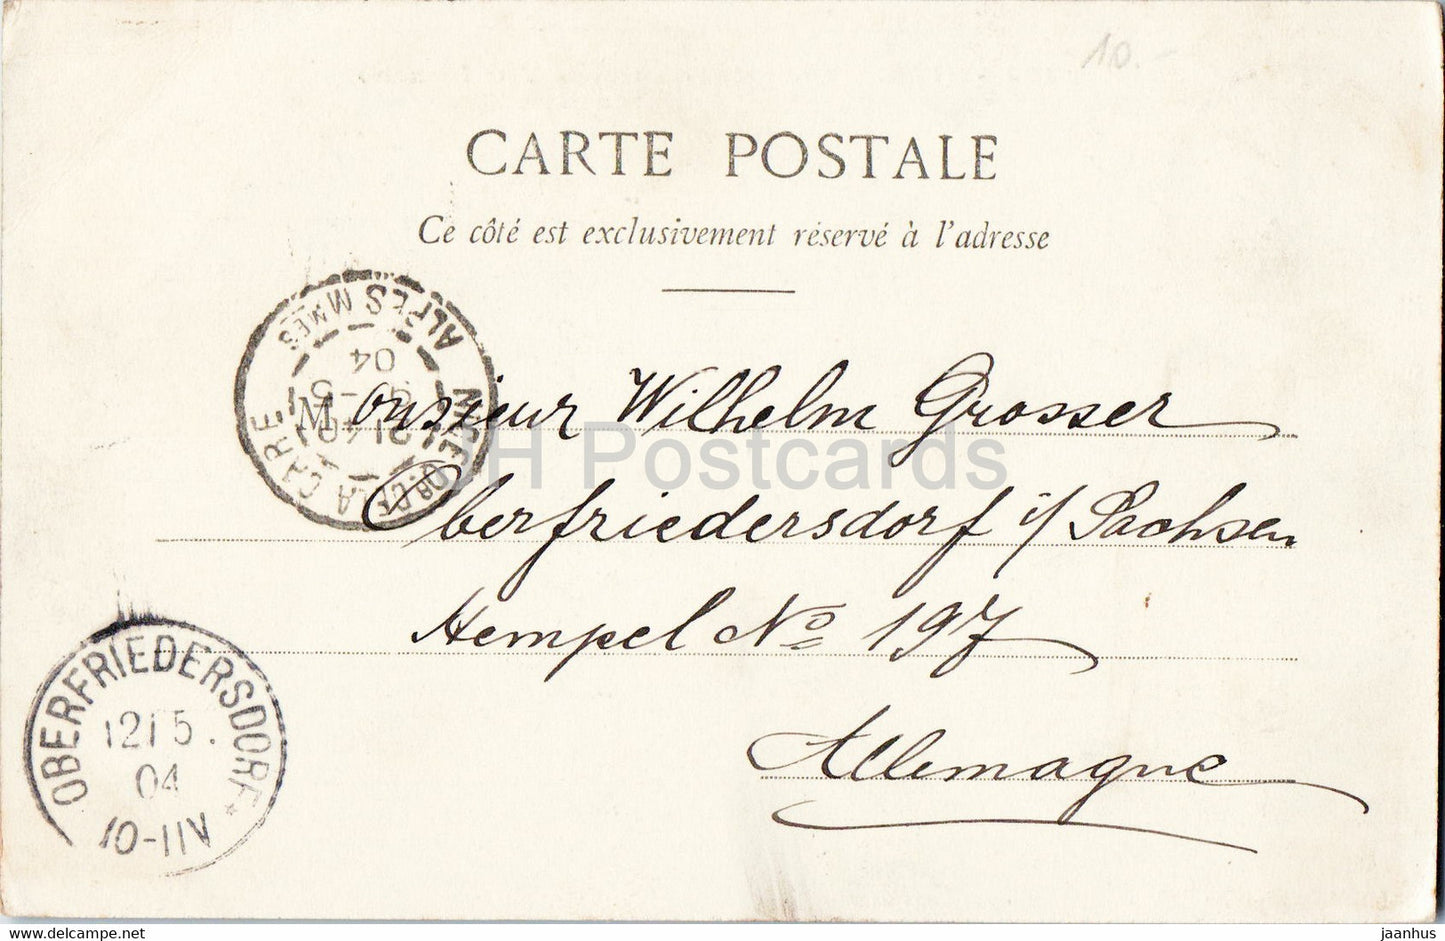 10.-
CARTE POSTALE
Ce côté est exclusivement réservé à l'adresse
NICE LA GARE
ALPES MMES
04
Monsieur Wilhelm Grosser
JH Postcards
Oberfriedersdorf i/ Sachsen
Hempel No 197
Allemagne
OBERFRIEDERSDORF *
12 5.
04
10-11V
delcampe.net
jaanhus